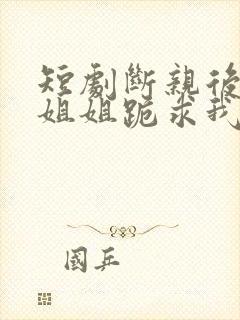 短劇斷親後
姐姐跪求我
國乒